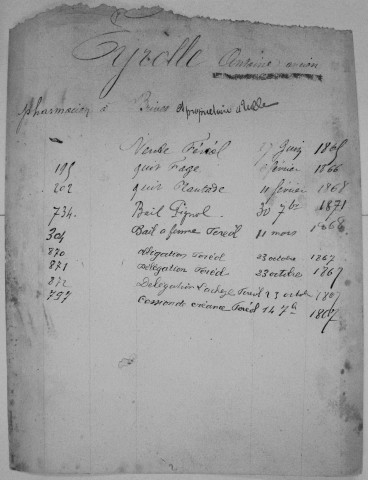 Eyrolle Antoine
pharmacien à Brives & propriétaire
Vente Foréil 17 Juin 1865
195 quit Fage février 1866
202 quit Plantade 11 février 1868
734. Bail Pignol 30 7bre 1871
304 Bail a ferme Foréil 11 mars 1868
870 délégation Foréil 23 octobre 1867
871 Délégation Foréil 23 octobre 1867
872 Délégation Foréil 23 octobre 1867
797 Cession de créance Foréil 14 7bre 1867